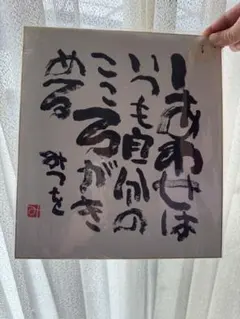 しあわせは
いつも自分の
こころがき
める
みつを